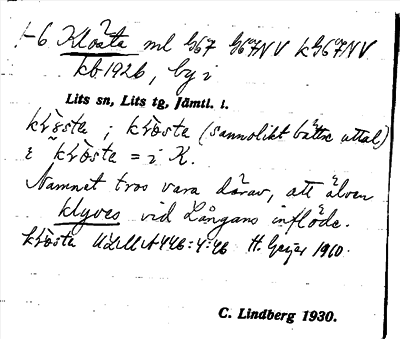 1-6 Klösta ml G67 G67NV kG67NV
kb 1926, by i
Lits sn, Lits tg, Jämtl. l.
klö̀sta ; krö̀sta (sannolikt bättre uttal)
i krö̀sta = i K.
Namnet tros vara därav, att älven
klyves vid Långans inflöde.
krö̀sta ULMA 446:4:46 H. Geijer 1910.
C. Lindberg 1930.